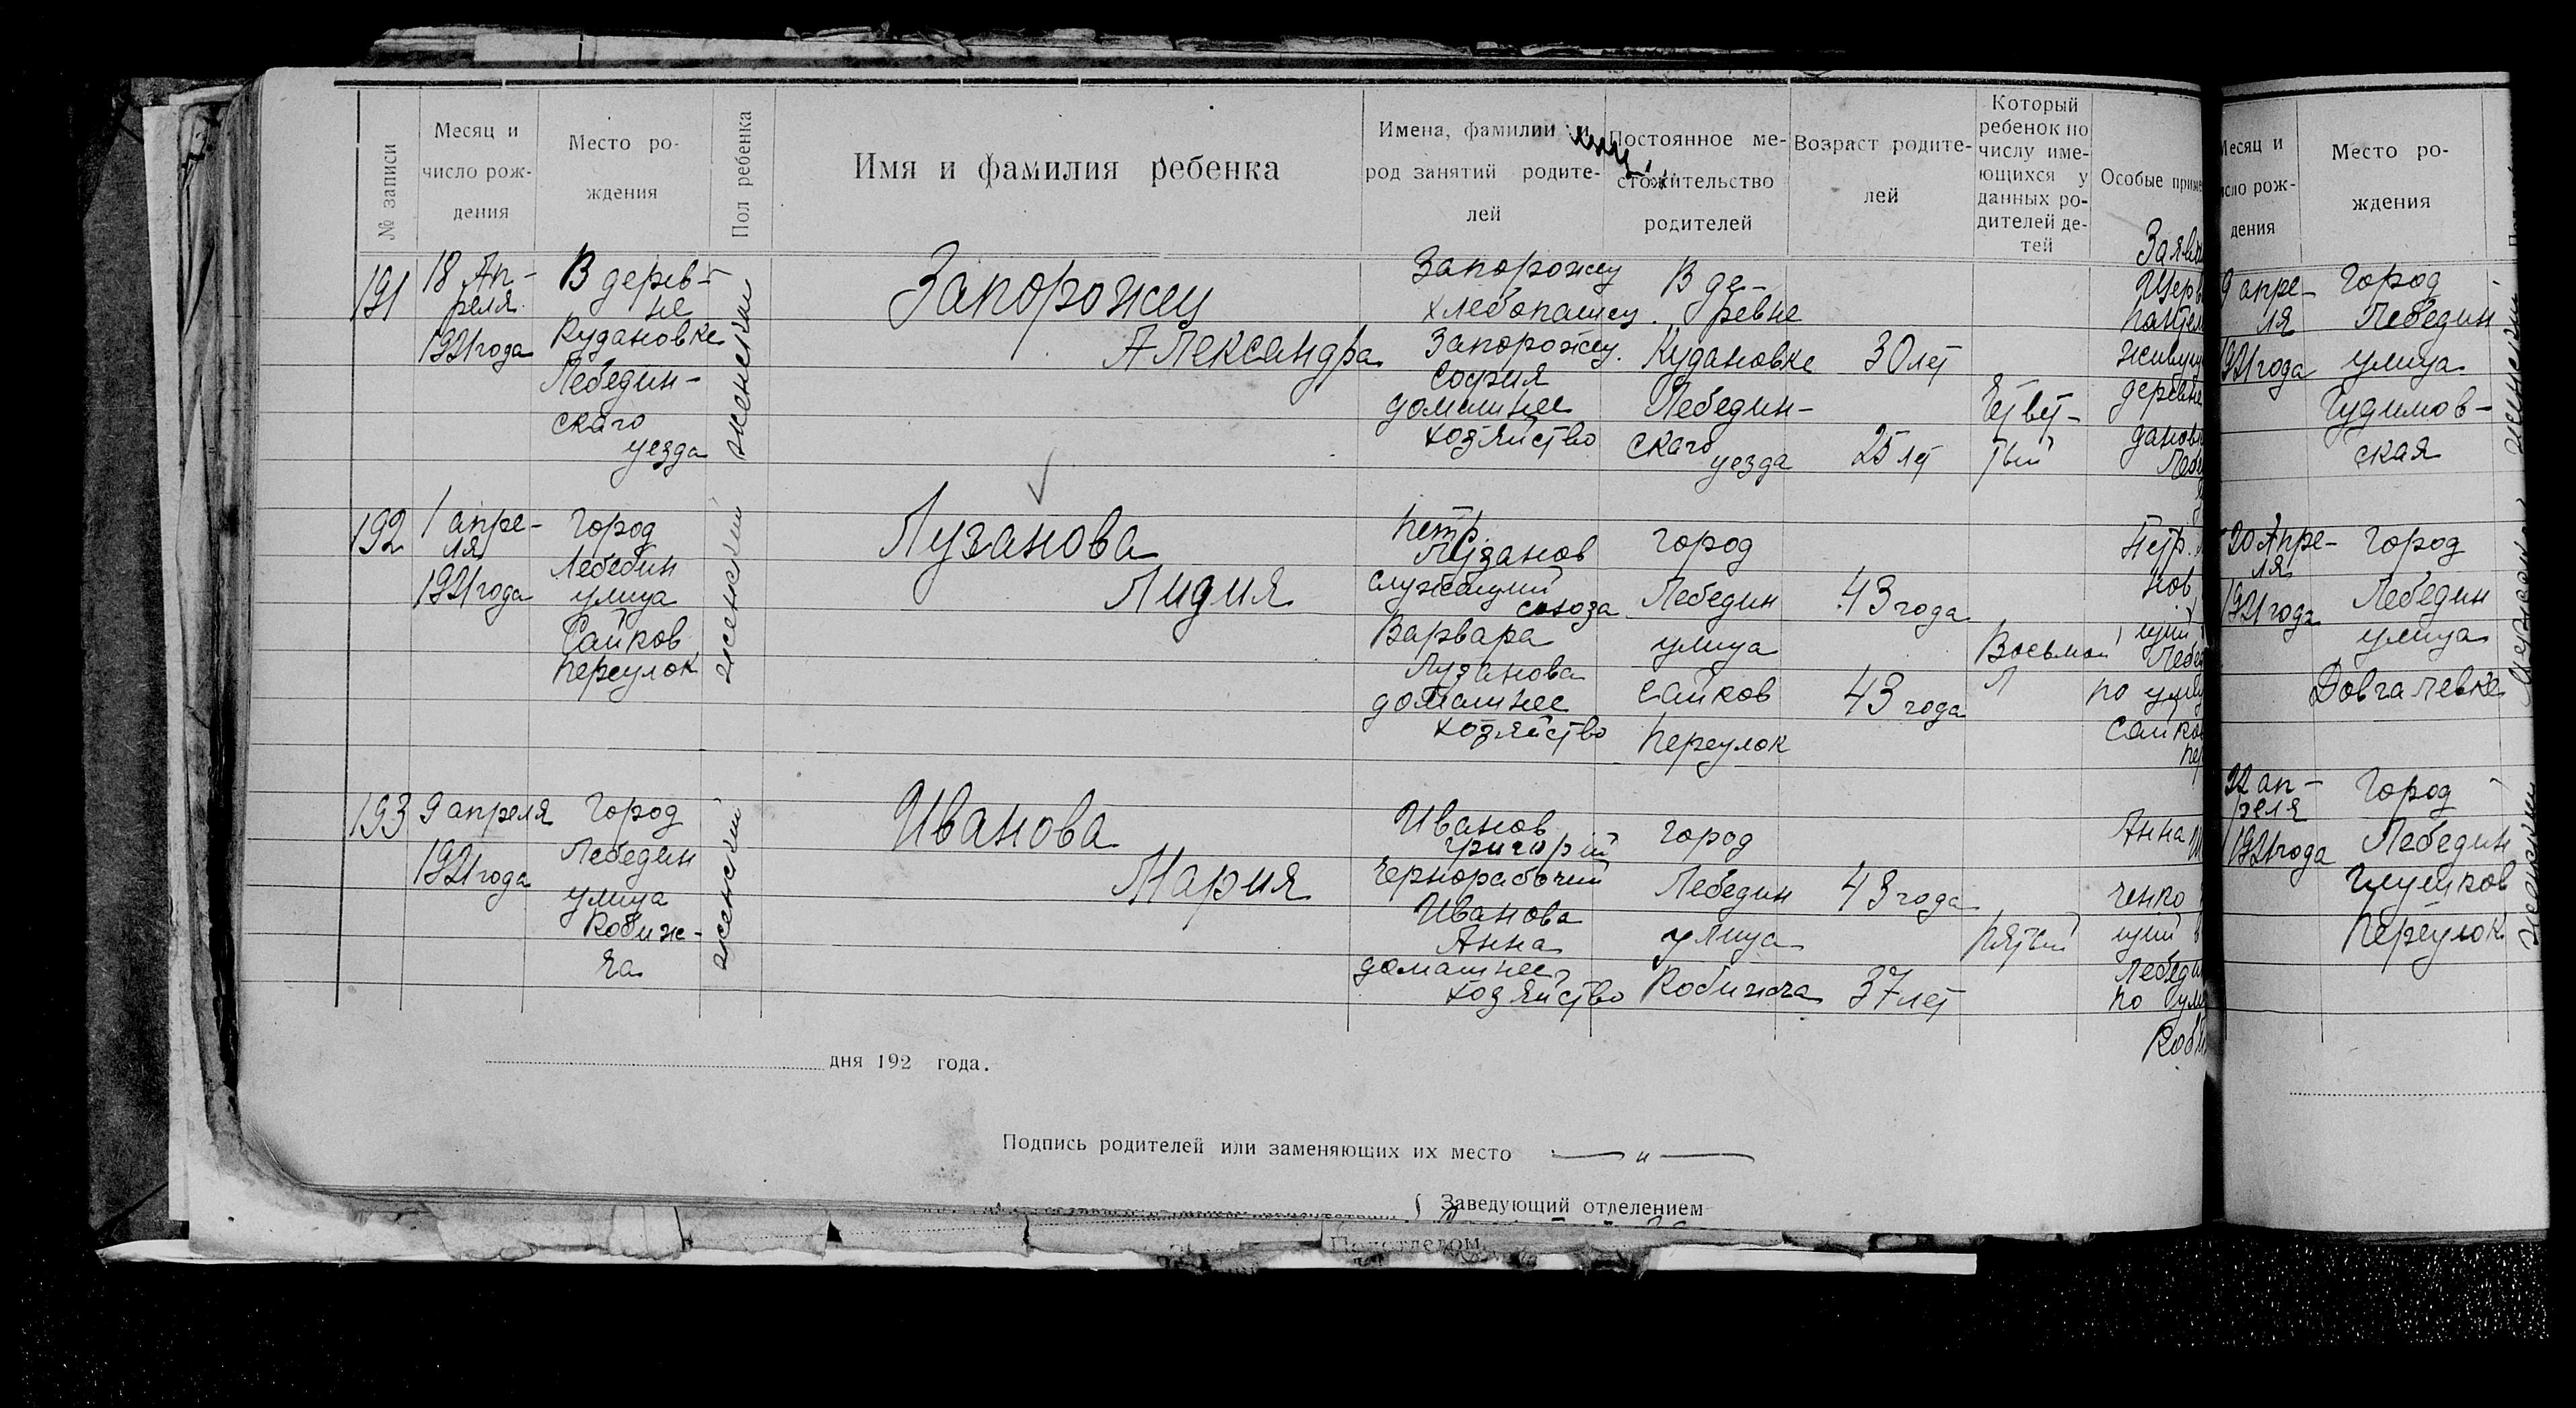 № записи
Месяц и
число рож-
дения
Место ро-
ждения
Пол ребенка
Имя и фамилия ребенка
Имена, фамилии и
род занятий родите-
лей
Постоянное ме-
стожительство
родителей
Возраст родите-
лей
Который
ребенок по
числу име-
ющихся у
данных ро-
дителей де-
тей
Особые приме
191
18 Ап-
реля
1921 года
В дерев-
не
Кудановке
Лебедин-
скаго
уезда
женский
Запорожец
Александра
Запорожец
хлебопашец
Запорожец
София
домашнее
хозяйство
В де-
ревне
Кудановке
Лебедин-
скаго
уезда
30 лет
25 лет
Четвер-
тый
Заяви
живущ
деревне
192
1 апре-
ля
1921 года
город
Лебедин
улица
Сайков
переулок
женский
Лузанова
Лидия
Петр
Лузанов
служащий
союза
Варвара
Лузанова
домашнее
хозяйство
город
Лебедин
улица
Сайков
переулок
43 года
43 года
Восьмой
Петр
нов
щий
Лебед
по улиц
Сайков
пер
193
9 апреля
1921 года
город
Лебедин
улица
Кобиж-
ча
женский
Иванова
Мария
Иванов
григорий
чернорабочий
Иванова
Анна
домашнее
хозяйство
город
Лебедин
улица
Кобижча
43 года
37 лет
пятый
Анна
ченко
щий в
Лебеди
по ули
Коби
дня 192 года.
Подпись родителей или заменяющих их место — " —
Заведующий отделением
Подотделом
Месяц и
число рож-
дения
Место ро-
ждения
9 апре-
ля
1921 года
город
Лебедин
улица
Гудимов-
ская
женский
20 Апре-
ля
1921 года
город
Лебедин
улица
Довгалевке
22 ап-
реля
1921 года
город
Лебедин
переулок
женский